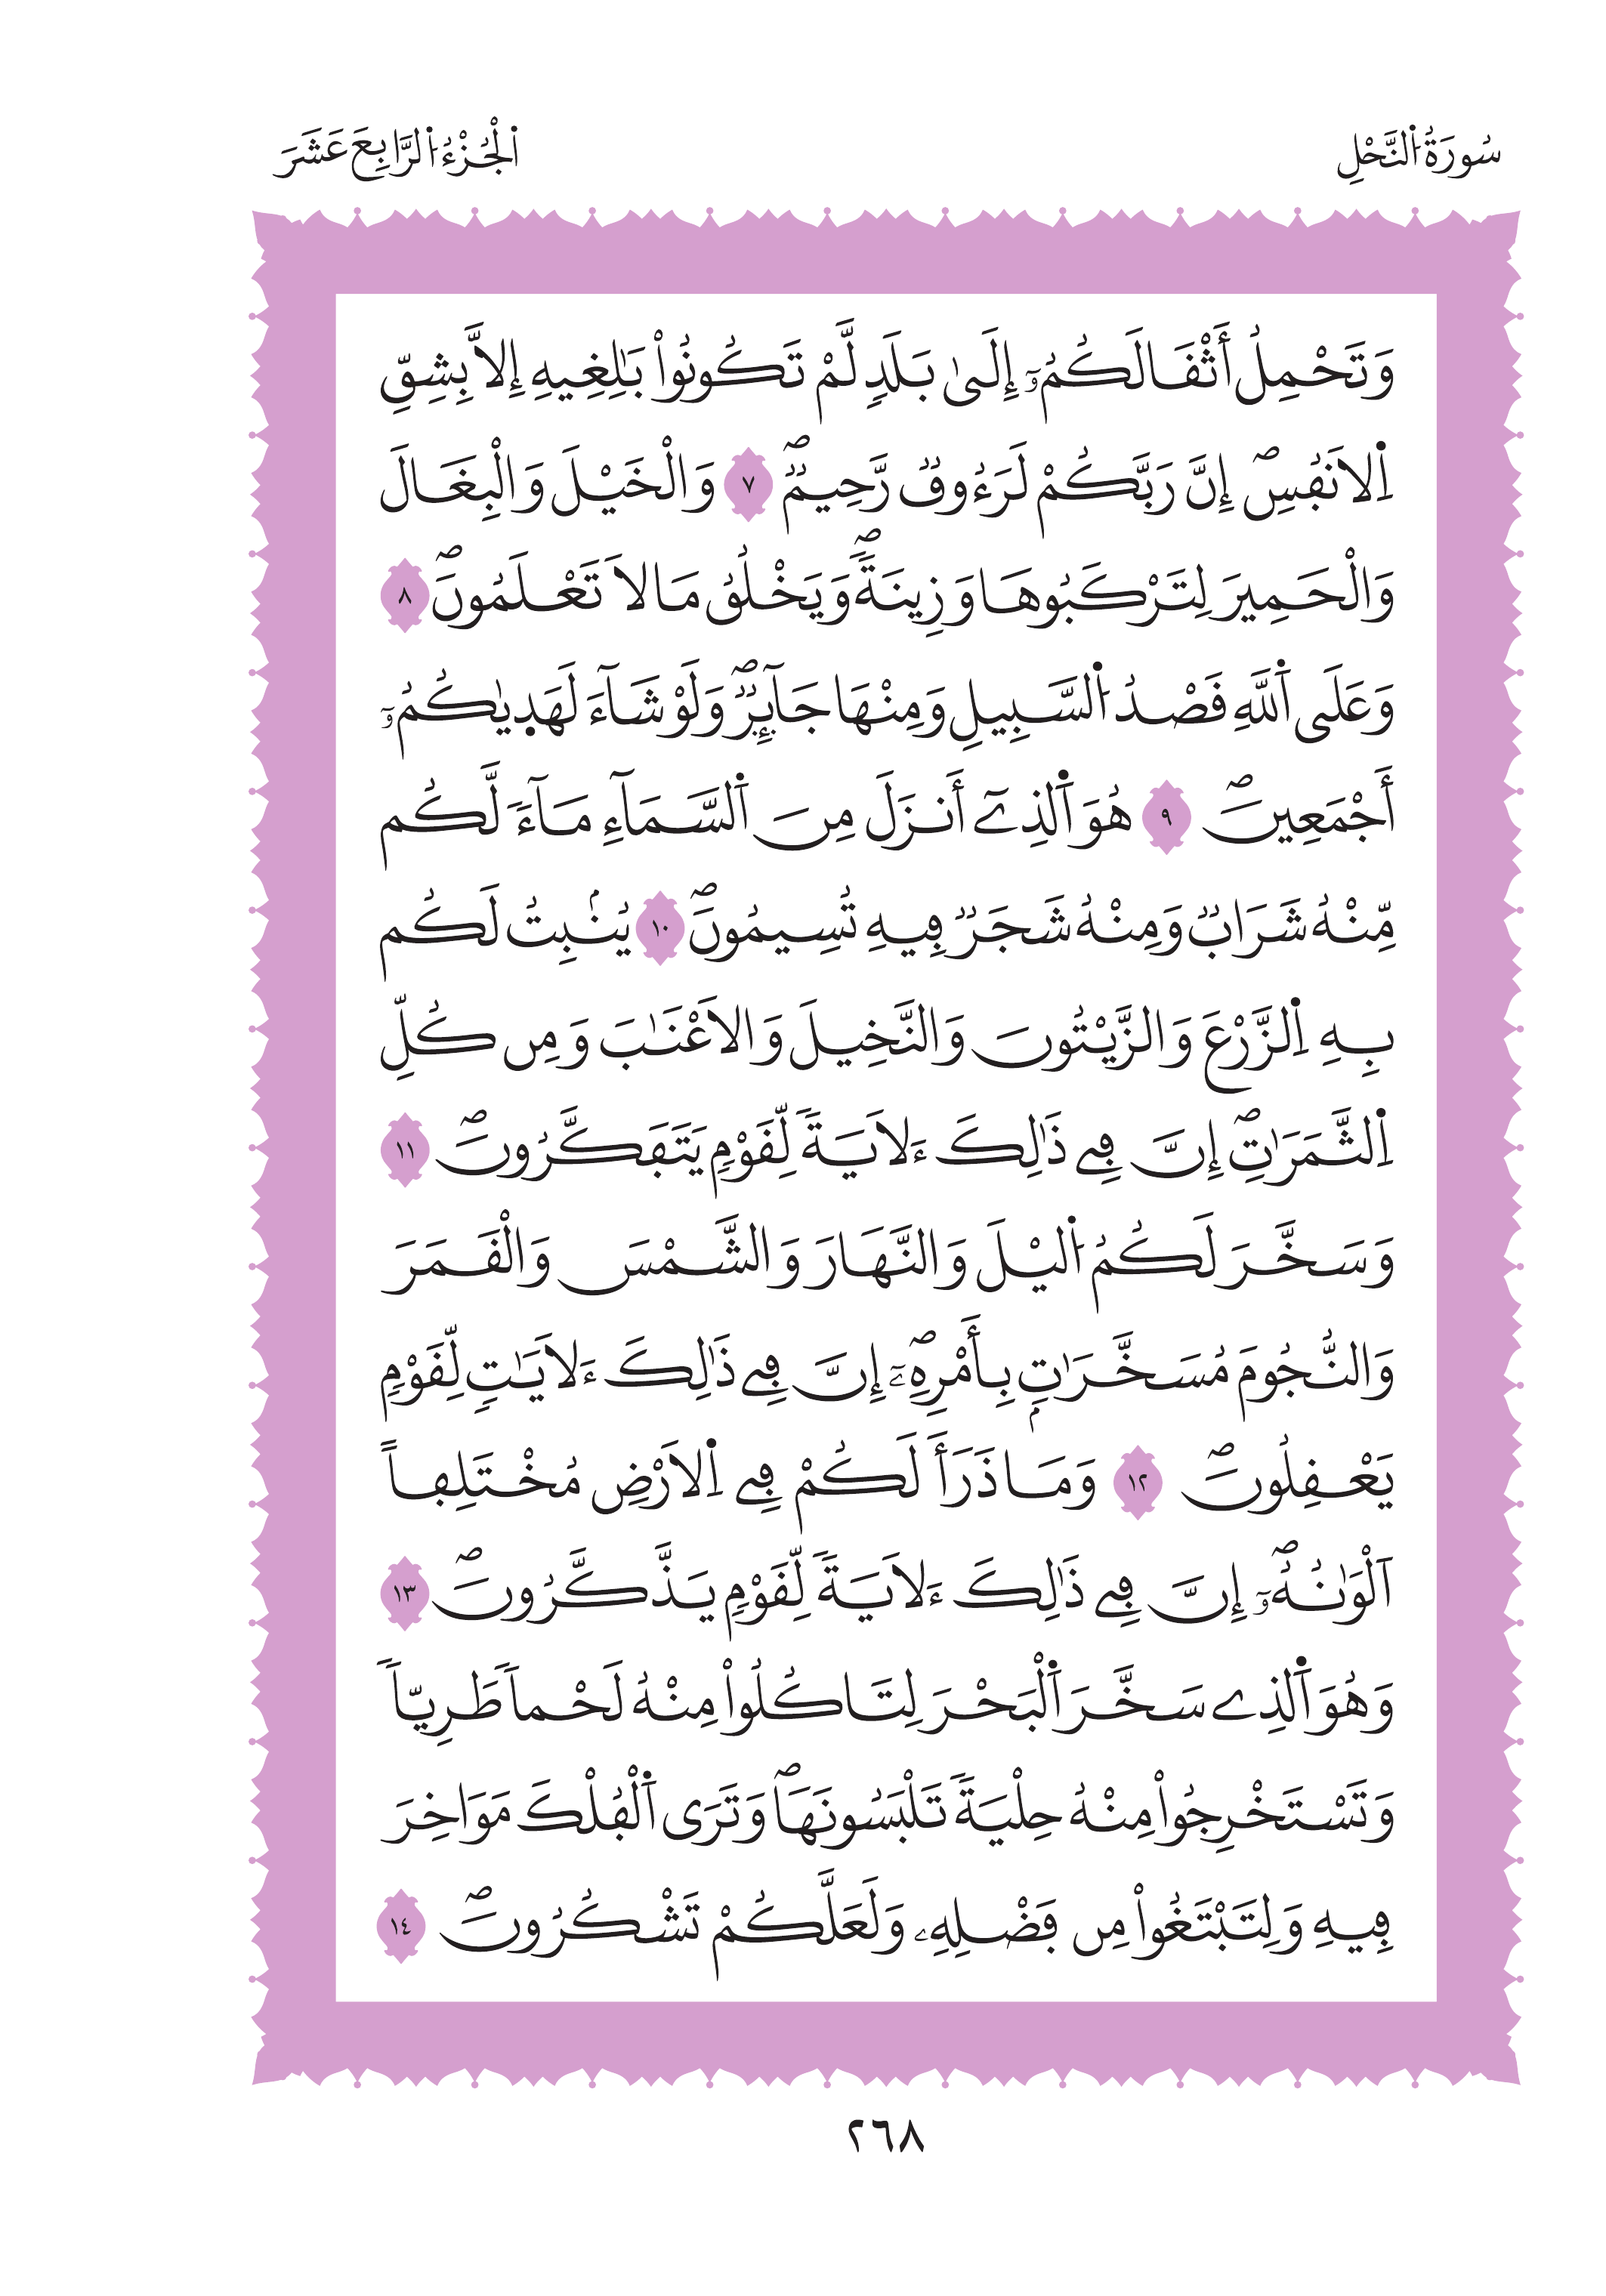 سُورَةُ اُ۬لنَّحْلِ
اَ۬لْجُزْءُ اُ۬لرَّابِعَ عَشَرَ
وَتَحْمِلُ أَثْقَالَكُمُۥٓ إِلَىٰ بَلَدٖ لَّمْ تَكُونُواْ بَٰلِغِيهِ إِلاَّ بِشِقِّ
اِ۬لَانفُسِۖ إِنَّ رَبَّكُمْ لَرَءُوفٞ رَّحِيمٞۖ ٧ وَالْخَيْلَ وَالْبِغَالَ
وَالْحَمِيرَ لِتَرْكَبُوهَا وَزِينَةٗۖ وَيَخْلُقُ مَا لاَ تَعْلَمُونَۖ ٨
وَعَلَى اَ۬للَّهِ قَصْدُ اُ۬لسَّبِيلِ وَمِنْهَا جَآئِرٞۖ وَلَوْ شَآءَ لَهَد۪يٰكُمُۥٓ
أَجْمَعِينَۖ ٩ هُوَ اَ۬لذِےٓ أَنزَلَ مِنَ اَ۬لسَّمَآءِ مَآءٗ لَّكُم
مِّنْهُ شَرَابٞ وَمِنْهُ شَجَرٞ فِيهِ تُسِيمُونَۖ ١٠ يُنۢبِتُ لَكُم
بِهِ اِ۬لزَّرْعَ وَالزَّيْتُونَ وَالنَّخِيلَ وَالَاعْنَٰبَ وَمِن كُلِّ
اِ۬لثَّمَرَٰتِۖ إِنَّ فِے ذَٰلِكَ ءَلَايَةٗ لِّقَوْمٖ يَتَفَكَّرُونَۖ ١١
وَسَخَّرَ لَكُمُ اُ۬ليْلَ وَالنَّهَارَ وَالشَّمْسَ وَالْقَمَرَ
وَالنُّجُومَ مُسَخَّرَٰتِۢ بِأَمْرِهِۦٓۖ إِنَّ فِے ذَٰلِكَ ءَلَايَٰتٖ لِّقَوْمٖ
يَعْقِلُونَۖ ١٢ وَمَا ذَرَأَ لَكُمْ فِے اِ۬لَارْضِ مُخْتَلِفاً
اَلْوَٰنُهُۥٓۖ إِنَّ فِے ذَٰلِكَ ءَلَايَةٗ لِّقَوْمٖ يَذَّكَّرُونَۖ ١٣
وَهُوَ اَ۬لذِے سَخَّرَ اَ۬لْبَحْرَ لِتَاكُلُواْ مِنْهُ لَحْماٗ طَرِيّاٗ
وَتَسْتَخْرِجُواْ مِنْهُ حِلْيَةٗ تَلْبَسُونَهَاۖ وَتَرَى اَ۬لْفُلْكَ مَوَاخِرَ
فِيهِ وَلِتَبْتَغُواْ مِن فَضْلِهِۦ وَلَعَلَّكُمْ تَشْكُرُونَۖ ١٤
٢٦٨